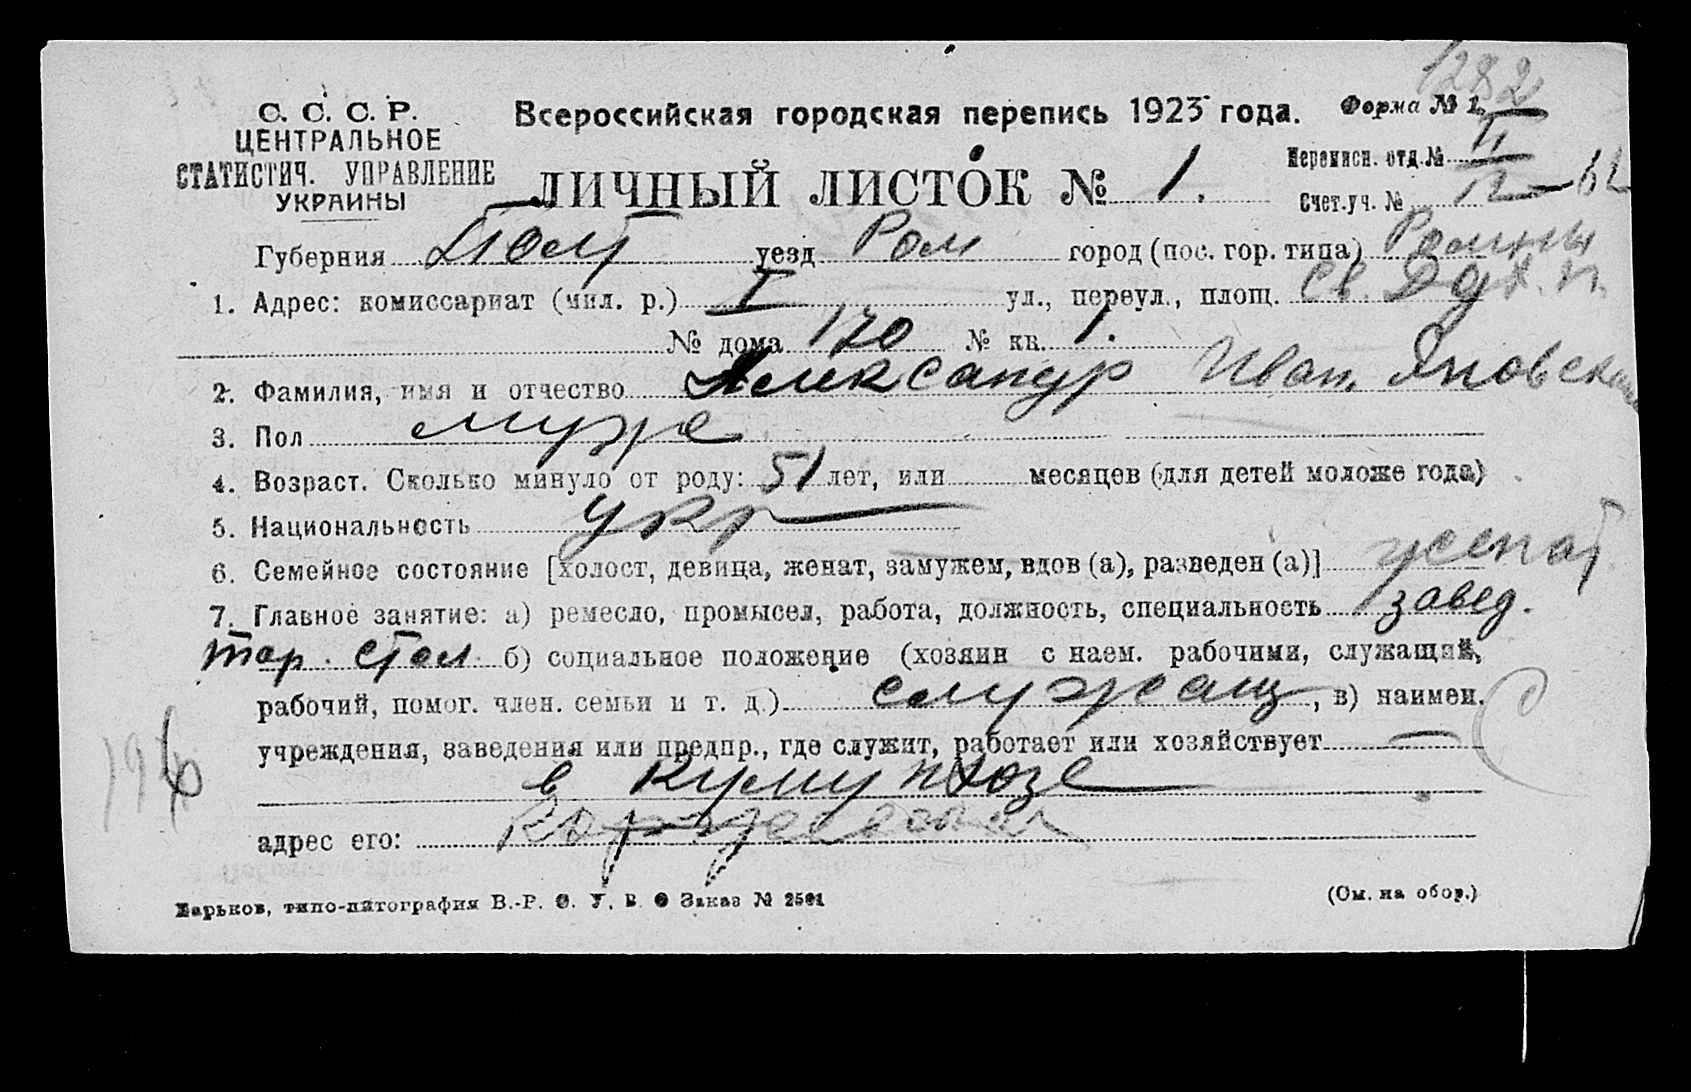 1282
С. С. С. Р.
ЦЕНТРАЛЬНОЕ
СТАТИСТИЧ. УПРАВЛЕНИЕ
УКРАИНЫ
Всероссийская городская перепись 1923 года.
Форма № 1.
ЛИЧНЫЙ ЛИСТОК № 1.
Переписн. отд. № II
Счет.уч. № 12 - 62
Губерния Полт уезд Ром город (пос. гор. типа) Ромны
1. Адрес: комиссариат (мил. р.) I ул., переул., площ. Св.
№ дома 170 № кв. 1.
2. Фамилия, имя и отчество Александр Иван. Яновский
3. Пол муж
4. Возраст. Сколько минуло от роду: 51 лет, или месяцев (для детей моложе года)
5. Национальность укр
6. Семейное состояние [холост, девица, женат, замужем, вдов (а), разведен (а)] женат
7. Главное занятие: а) ремесло, промысел, работа, должность, специальность завед.
тар. стол б) социальное положение (хозяин с наем. рабочими, служащий,
рабочий, помог. член. семьи и т. д.) служащ, в) наимен.
учреждения, заведения или предпр., где служит, работает или хозяйствует
в
адрес его:
196
Харьков, типо-литография В.-Р. Ф. У. В. О Заказ № 2501
(См. на обор.)